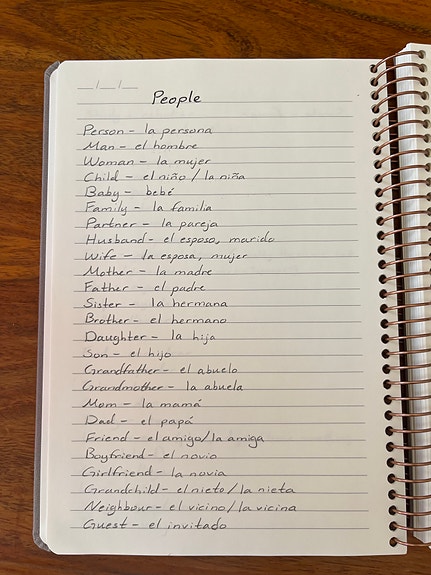 __/__/__
People
Person - la persona
Man - el hombre
Woman - la mujer
Child - el niño / la niña
Baby - bebé
Family - la familia
Partner - la pareja
Husband - el esposo, marido
Wife - la esposa, mujer
Mother - la madre
Father - el padre
Sister - la hermana
Brother - el hermano
Daughter - la hija
Son - el hijo
Grandfather - el abuelo
Grandmother - la abuela
Mom - la mamá
Dad - el papá
Friend - el amigo/la amiga
Boyfriend - el novio
Girlfriend - la novia
Grandchild - el nieto / la nieta
Neighbour - el vicino / la vicina
Guest - el invitado